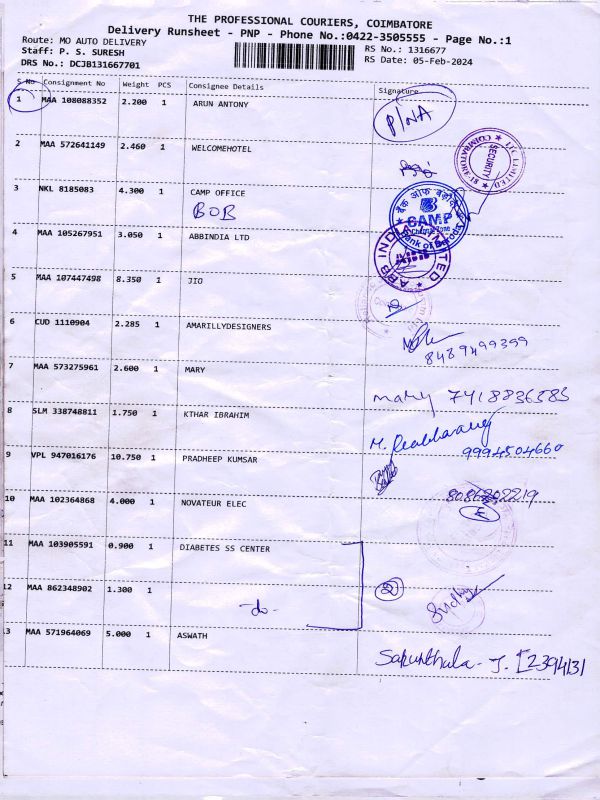 THE PROFESSIONAL COURIERS, COIMBATORE
Delivery Runsheet - PNP - Phone No.:0422-3505555 - Page No.:1
Route: MO AUTO DELIVERY
Staff: P. S. SURESH
DRS No.: DCJB131667701
RS No.: 1316677
RS Date: 05-Feb-2024
S No Consignment No Weight PCS Consignee Details Signature
1 MAA 108088352 2.200 1 ARUN ANTONY P/NA
2 MAA 572641149 2.460 1 WELCOMEHOTEL
ITC LIMITED COIMBATORE SECURITY
3 NKL 8185083 4.300 1 CAMP OFFICE
BOB
बैंक ऑफ बड़ौदा CAMP Bank of Baroda
4 MAA 105267951 3.050 1 ABBINDIA LTD
ABB INDIA LIMITED
5 MAA 107447498 8.350 1 JIO
6 CUD 1110904 2.285 1 AMARILLYDESIGNERS
8489499399
7 MAA 573275961 2.600 1 MARY
mary 7418836585
8 SLM 338748811 1.750 1 KTHAR IBRAHIM
M.
9994504660
9 VPL 947016176 10.750 1 PRADHEEP KUMSAR
10 MAA 102364868 4.000 1 NOVATEUR ELEC
11 MAA 103905591 0.900 1 DIABETES SS CENTER
12 MAA 862348902 1.300 1 -do-
2
13 MAA 571964069 5.000 1 ASWATH
Sakunthala - J. [2394131